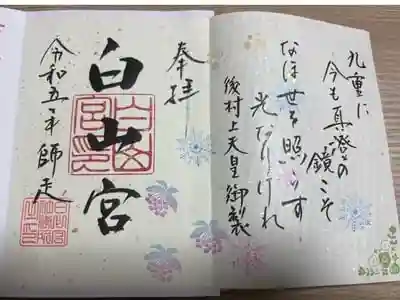 九重に
今も真澄の
鏡こそ
なほ世を照らす
光なりけれ
後村上天皇御製
奉拝
白山宮
令和五年師走